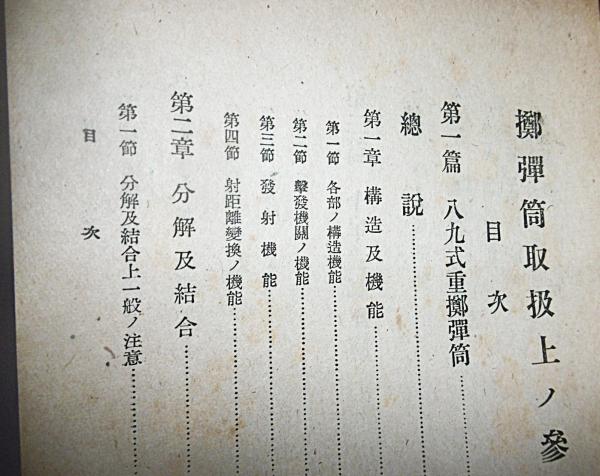 擲彈筒取扱上ノ參
目次
第一篇 八九式重擲彈筒
總說
第一章 構造及機能
第一節 各部ノ構造機能
第二節 擊發機關ノ機能
第三節 發射機能
第四節 射距離變換ノ機能
第二章 分解及結合
第一節 分解及結合上一般ノ注意
目次